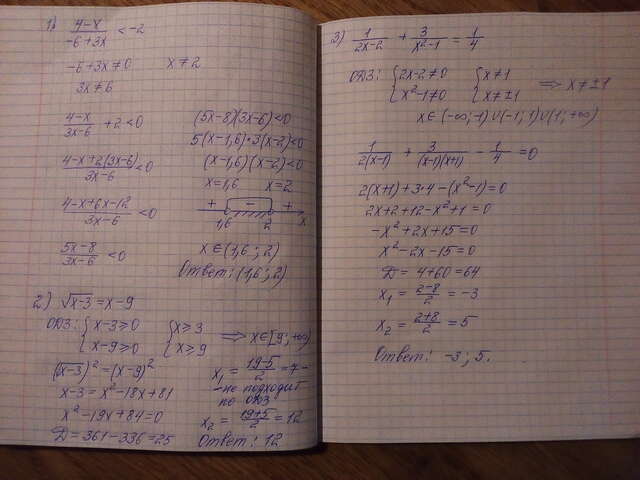 1) (4-x)/(-6+3x) < -2
-6+3x≠0 x≠2
3x≠6
(4-x)/(3x-6) +2<0
(4-x+2(3x-6))/(3x-6) <0
(4-x+6x-12)/(3x-6) <0
(5x-8)/(3x-6) <0
(5x-8)(3x-6)<0
5(x-1,6)·3(x-2)<0
(x-1,6)(x-2)<0
x=1,6 x=2
+ - +
1,6 2 x
x∈(1,6; 2)
Ответ: (1,6; 2)
2) √(x-3) = x-9
ОДЗ: { x-3≥0 { x≥3 ⟹ x∈[9; +∞)
x-9≥0 x≥9
(√(x-3))² = (x-9)²
x-3 = x²-18x+81
x²-19x+84=0
D = 361-336=25
x₁ = (19-5)/2 = 7 -
- не подходит
по ОДЗ
x₂ = (19+5)/2 = 12
Ответ: 12
3) 1/(2x-2) + 3/(x²-1) = 1/4
ОДЗ: { 2x-2≠0 { x≠1 ⟹ x≠±1
x²-1≠0 x≠±1
x∈(-∞;-1)∪(-1;1)∪(1;+∞)
1/(2(x-1)) + 3/((x-1)(x+1)) - 1/4 =0
2(x+1)+3·4-(x²-1)=0
2x+2+12-x²+1=0
-x²+2x+15=0
x²-2x-15=0
D = 4+60=64
x₁ = (2-8)/2 = -3
x₂ = (2+8)/2 = 5
Ответ: -3; 5.